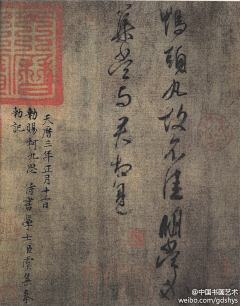 鸭头丸故不佳明当必
集当与君相见
天曆三年正月十二日
勑賜柯九思侍書學士臣虞集奉
勑記
@中国书画艺术
weibo.com/gdshys